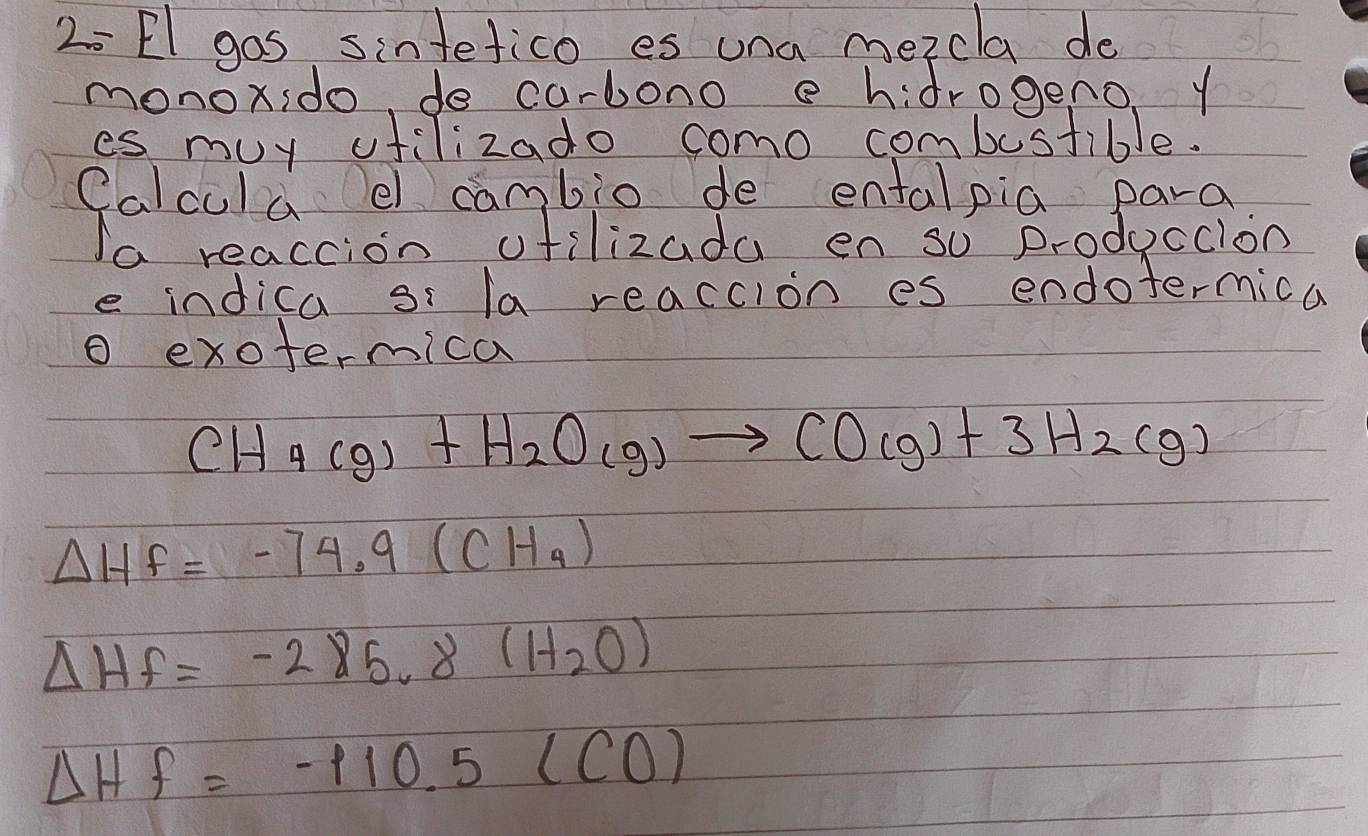 2.- El gas sintetico es una mezcla de
monoxido de carbono e hidrogeno y
es muy utilizado como combustible.
Calcula el cambio de entalpia para
la reacción utilizada en su producción
e indica si la reacción es endotermica
o exotermica
CH4(g) + H2O(g) → CO(g) + 3H2(g)
ΔHf = -74.9 (CH4)
ΔHf = -285.8 (H2O)
ΔHf = -110.5 (CO)